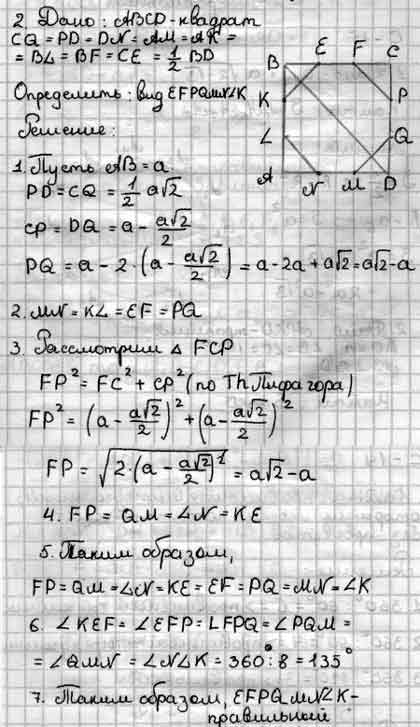 2. Дано: ABCD - квадрат
CQ = PD = DN = AM = AK =
= BL = BF = CE = 1/2 BD
Определить: вид EFPQMNLK
Решение:
B E F C
K P
L Q
A N M D
1. Пусть AB = a
PD = CQ = 1/2 a√2
CP = DQ = a - a√2/2
PQ = a - 2·(a - a√2/2) = a - 2a + a√2 = a√2 - a
2. MN = KL = EF = PQ
3. Рассмотрим △ FCP
FP² = FC² + CP² (по Th Пифагора)
FP² = (a - a√2/2)² + (a - a√2/2)²
FP = √2·(a - a√2/2)² = a√2 - a
4. FP = QM = LN = KE
5. Таким образом,
FP = QM = LN = KE = EF = PQ = MN = LK
6. ∠KEF = ∠EFP = ∠FPQ = ∠PQM =
= ∠QMN = ∠NLK = 360° : 8 = 135°
7. Таким образом, EFPQMNLK -
правильный